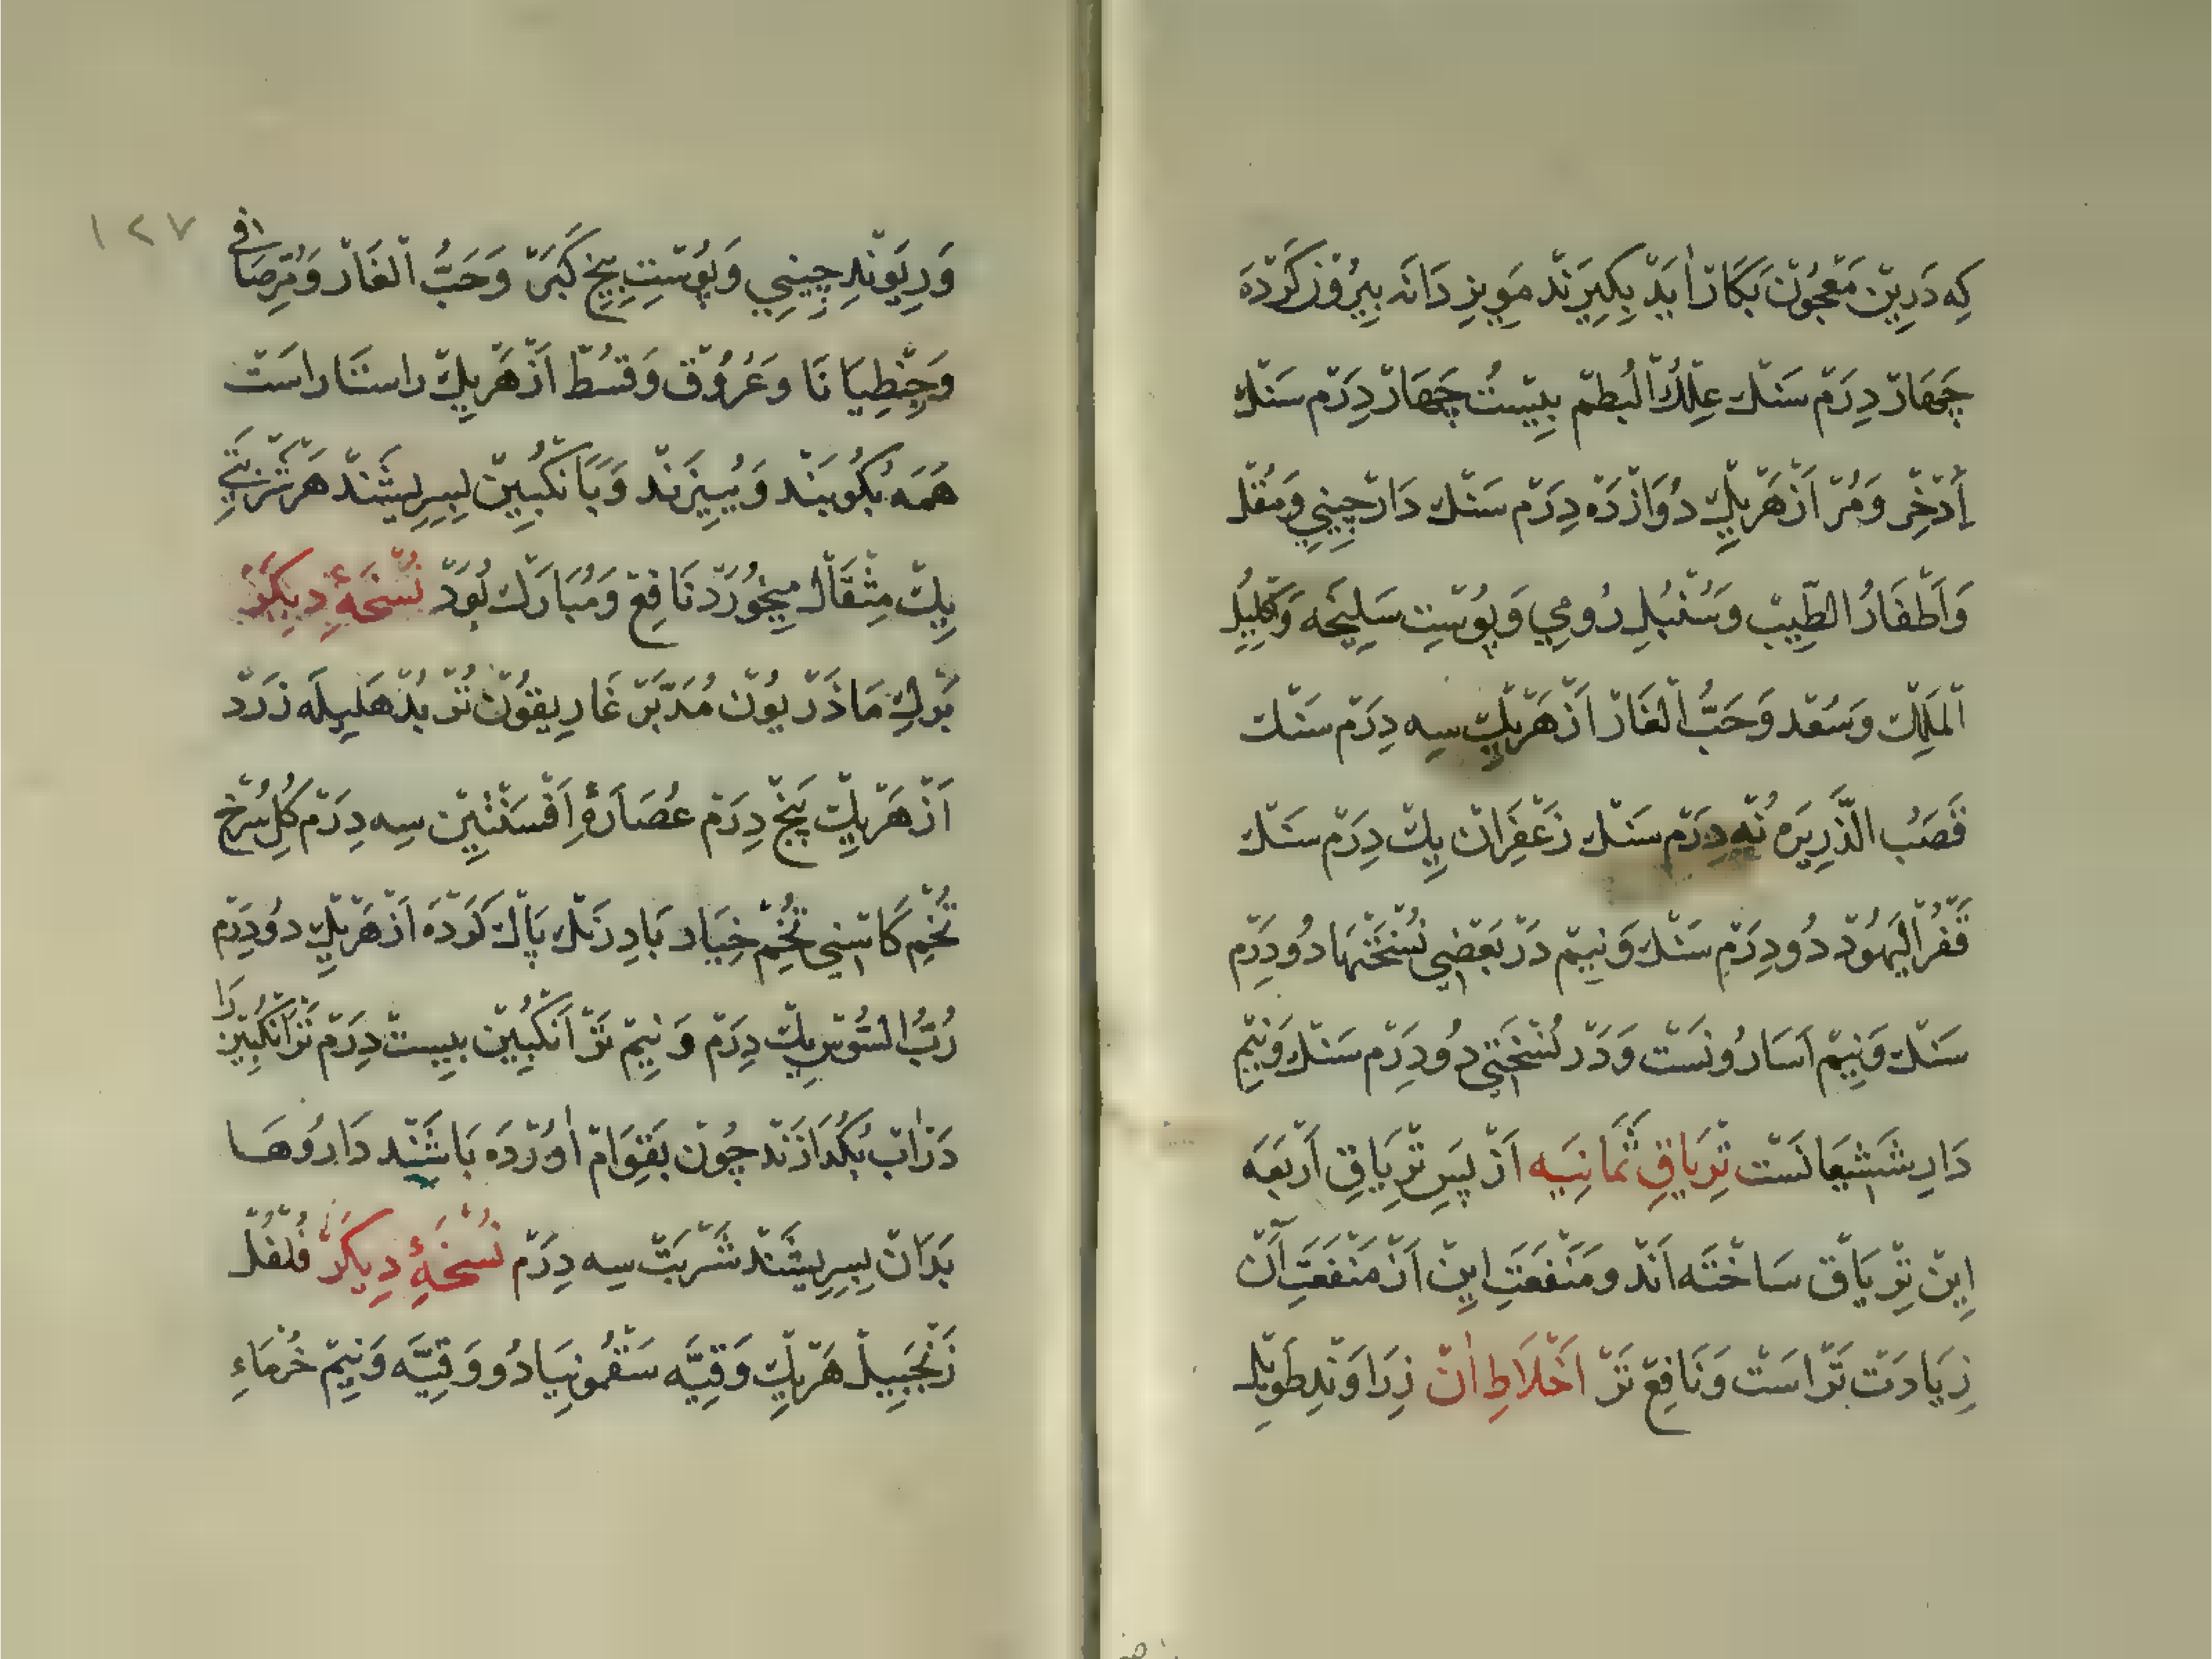 كِه دَرِيْن مَعْجُوْن بَكَارْ اٰيَدْ بِكِيرَنْد مَوِيزِ دَانَه بِيرُوْن كَرْدَه
چَهَارْ دِرَمْ سَنْك عِلْكُ الْبُطمْ بِيْسْتُ چَهَارْ دِرَمْ سَنْك
اِذْخِرْ وَمُرّ اَزْ هَرْيِكْ دُوَازْدَه دِرَمْ سَنْك دَارْچِينِي وَمُقْل
وَاَظْفَارُ الطِّيبْ وَسُنْبُلِ رُومِي وَپُوْسْتِ سَلِيخَه وَاِكْلِيلُ
الْمَلِكْ وَسُعْد وَحَبُّ الْغَارْ اَزْ هَرْيِكْ سِه دِرَمْ سَنْك
قَصَبُ الذَّرِيرَه نُه دِرَمْ سَنْك زَعْفِرَانْ يِكْ دِرَمْ سَنْك
قَفْرُ الْيَهُوْد دُو دِرَمْ سَنْك وَنِيمْ دَرْ بَعْضِي نُسْخَتْهَا دُو دِرَمْ
سَنْك وَنِيمْ اَسَارُونَسْت وَدَرْ نُسْخَتِي دُو دِرَمْ سَنْك وَنِيمْ
دَارِ شَشِيعَانَسْت تِرْيَاقِ ثَمَانِيَه اَزْ پَسِ تِرْيَاقِ اَرْبَعَه
اِينْ تِرْيَاقْ سَاخْتَه اَنْد وَمَنْفَعَتِ اِينْ اَزْ مَنْفَعَتِ آنْ
زِيَادَتْ تَرْ اسَتْ وَنَافِعْ تَرْ اَخْلَاطِ اٰنْ زِرَاوَنْدِ طَوِيلْ
١٢٧
وَرِيوَنْدِ چِينِي وَپُوْسْتِ بِيخِ كَبَرْ وَحَبُّ الْغَارْ وَمُرِّ صَافِي
وَجِنْطِيَانَا وَعُرُوْق وَقُسْط اَزْ هَرْيِكْ رَاسْتَارَاسَتْ
هَمَه بُكُوبَنْد وَبِبِيزَنْد وَبَا اَنْكُبِينْ بِسِرِيشَنْد هَرْ شَرْبَتِي
يِكْ مِثْقَالْ مِيخُورَدْ نَافِعْ وَمُبَارَكْ بُوَدْ نُسْخَهٔ دِيكَرْ
بَرْكِ مَاذَرْيُوْن مُدَبَّرْ غَارِيقُوْن تُرْبُدْ هَلِيلَه زَرْدْ
اَزْ هَرْيِكْ پَنْجْ دِرَمْ عُصَارَهٔ اَفْسَنْتِينْ سِه دِرَمْ كُلِ سُرْخْ
تُخْمِ كَاسْنِي تُخْمِ خِيَار بَادِرَنْك پَاكْ كَرْدَه اَزْ هَرْيِكْ دُو دِرَمْ
رُبُّ السُّوْس يِكْ دِرَمْ وَنِيمْ تَرْ اَنْكُبِينْ بِيسْتْ دِرَمْ تَرْ اَنْكُبِينْ رَا
دَرْ اٰبْ بُكُدَازَنْد چُوْن بَقِوَامْ اٰوُرْدَه بَاشَنْد دَارُوهَا
بَدَانْ بِسِرِيشَنْد شَرْبَتْ سِه دِرَمْ نُسْخَهٔ دِيكَرْ فُلْفُلْ
زَنْجَبِيلْ هَرْيِكْ وَقِيَّه سَقْمُونِيَا دُو وَقِيَّه وَنِيمْ خُرْمَاءِ